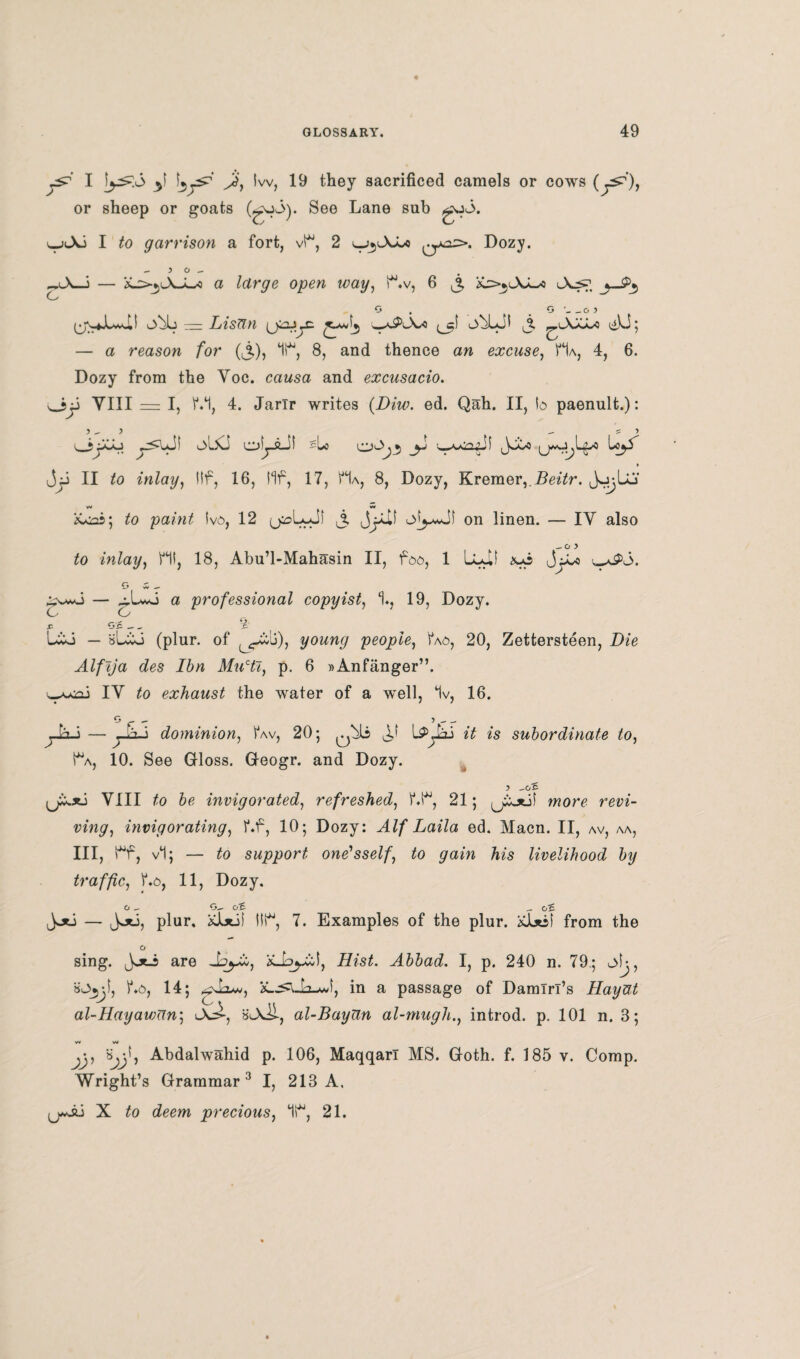 GLOSSARY. 49
نحر I نحروا او ذبحوا, ١٧٧, 19 they sacrificed camels or cows (نحر),
or sheep or goats (ذبح). See Lane sub ذبح.
ندب I to garrison a fort, ٧٣, 2 حصن مندوب. Dozy.
ندح — مندوحة a large open way, ٣٠٧, 6 وهو يجد مندوحة في
بلاد الشلمس = Lisān واسع عريض
لك منتدح في البلاد اى مذهب
— a reason for (في), ٩٣, 8, and thence an excuse, ٣٩٨, 4, 6.
Dozy from the Voc. causa and excusacio.
نزف VIII = I, ٢٠٩, 4. Jarīr writes (Dīw. ed. Qāh. II, ١٥ paenult.):
لو وردت ماء الفرات لكاد البحر ينزف
نزل II to inlay, ١١٤, 16, ١٩٤, 17, ٣٩٨, 8, Dozy, Kremer, Beitr. تنازيل
فضة; to paint ١٧٥, 12 السواد المنزل في البياض on linen. — IV also
to inlay, ٣٩١, 18, Abu’l-Mahāsin II, ٤٥٥, 1 ذهب منزل فيه المينا.
نسخ — نساخ a professional copyist, ٩٠, 19, Dozy.
نشأ — نشأة (plur. of ناشئ), young people, ٢٨٥, 20, Zettersteen, Die
Alfīja des Ibn Muʿṭī, p. 6 »Anfänger”.
نضب IV to exhaust the water of a well, ٩٧, 16.
نظر — نظر dominion, ٢٨٧, 20; نظرها الى فلان it is subordinate to,
٣٨, 10. See Gloss. Geogr. and Dozy.
نعش VIII to be invigorated, refreshed, ٢٠٣, 21; انعش more revi-
ving, invigorating, ٢٠٤, 10; Dozy: Alf Laila ed. Macn. II, ٨٧, ٨٨,
III, ٣٤, ٧٩; — to support one’sself, to gain his livelihood by
traffic, ٢٠٥, 11, Dozy.
نعل — نعل, plur. انعلة ١١٣, 7. Examples of the plur. افعلة from the
sing. فعل are شرط, اشرطة, Hist. Abbad. I, p. 240 n. 79; زاد,
ازودة, ٢٠٥, 14; سطح, اسطحة, in a passage of Damīrī’s Hayāt
al-Hayawān; خد, اخدة, al-Bayān al-mugh., introd. p. 101 n. 3;
زر, ازرة, Abdalwāhid p. 106, Maqqarī MS. Goth. f. 185 v. Comp.
Wright’s Grammar ³ I, 213 A.
نفس X to deem precious, ٩٣, 21.